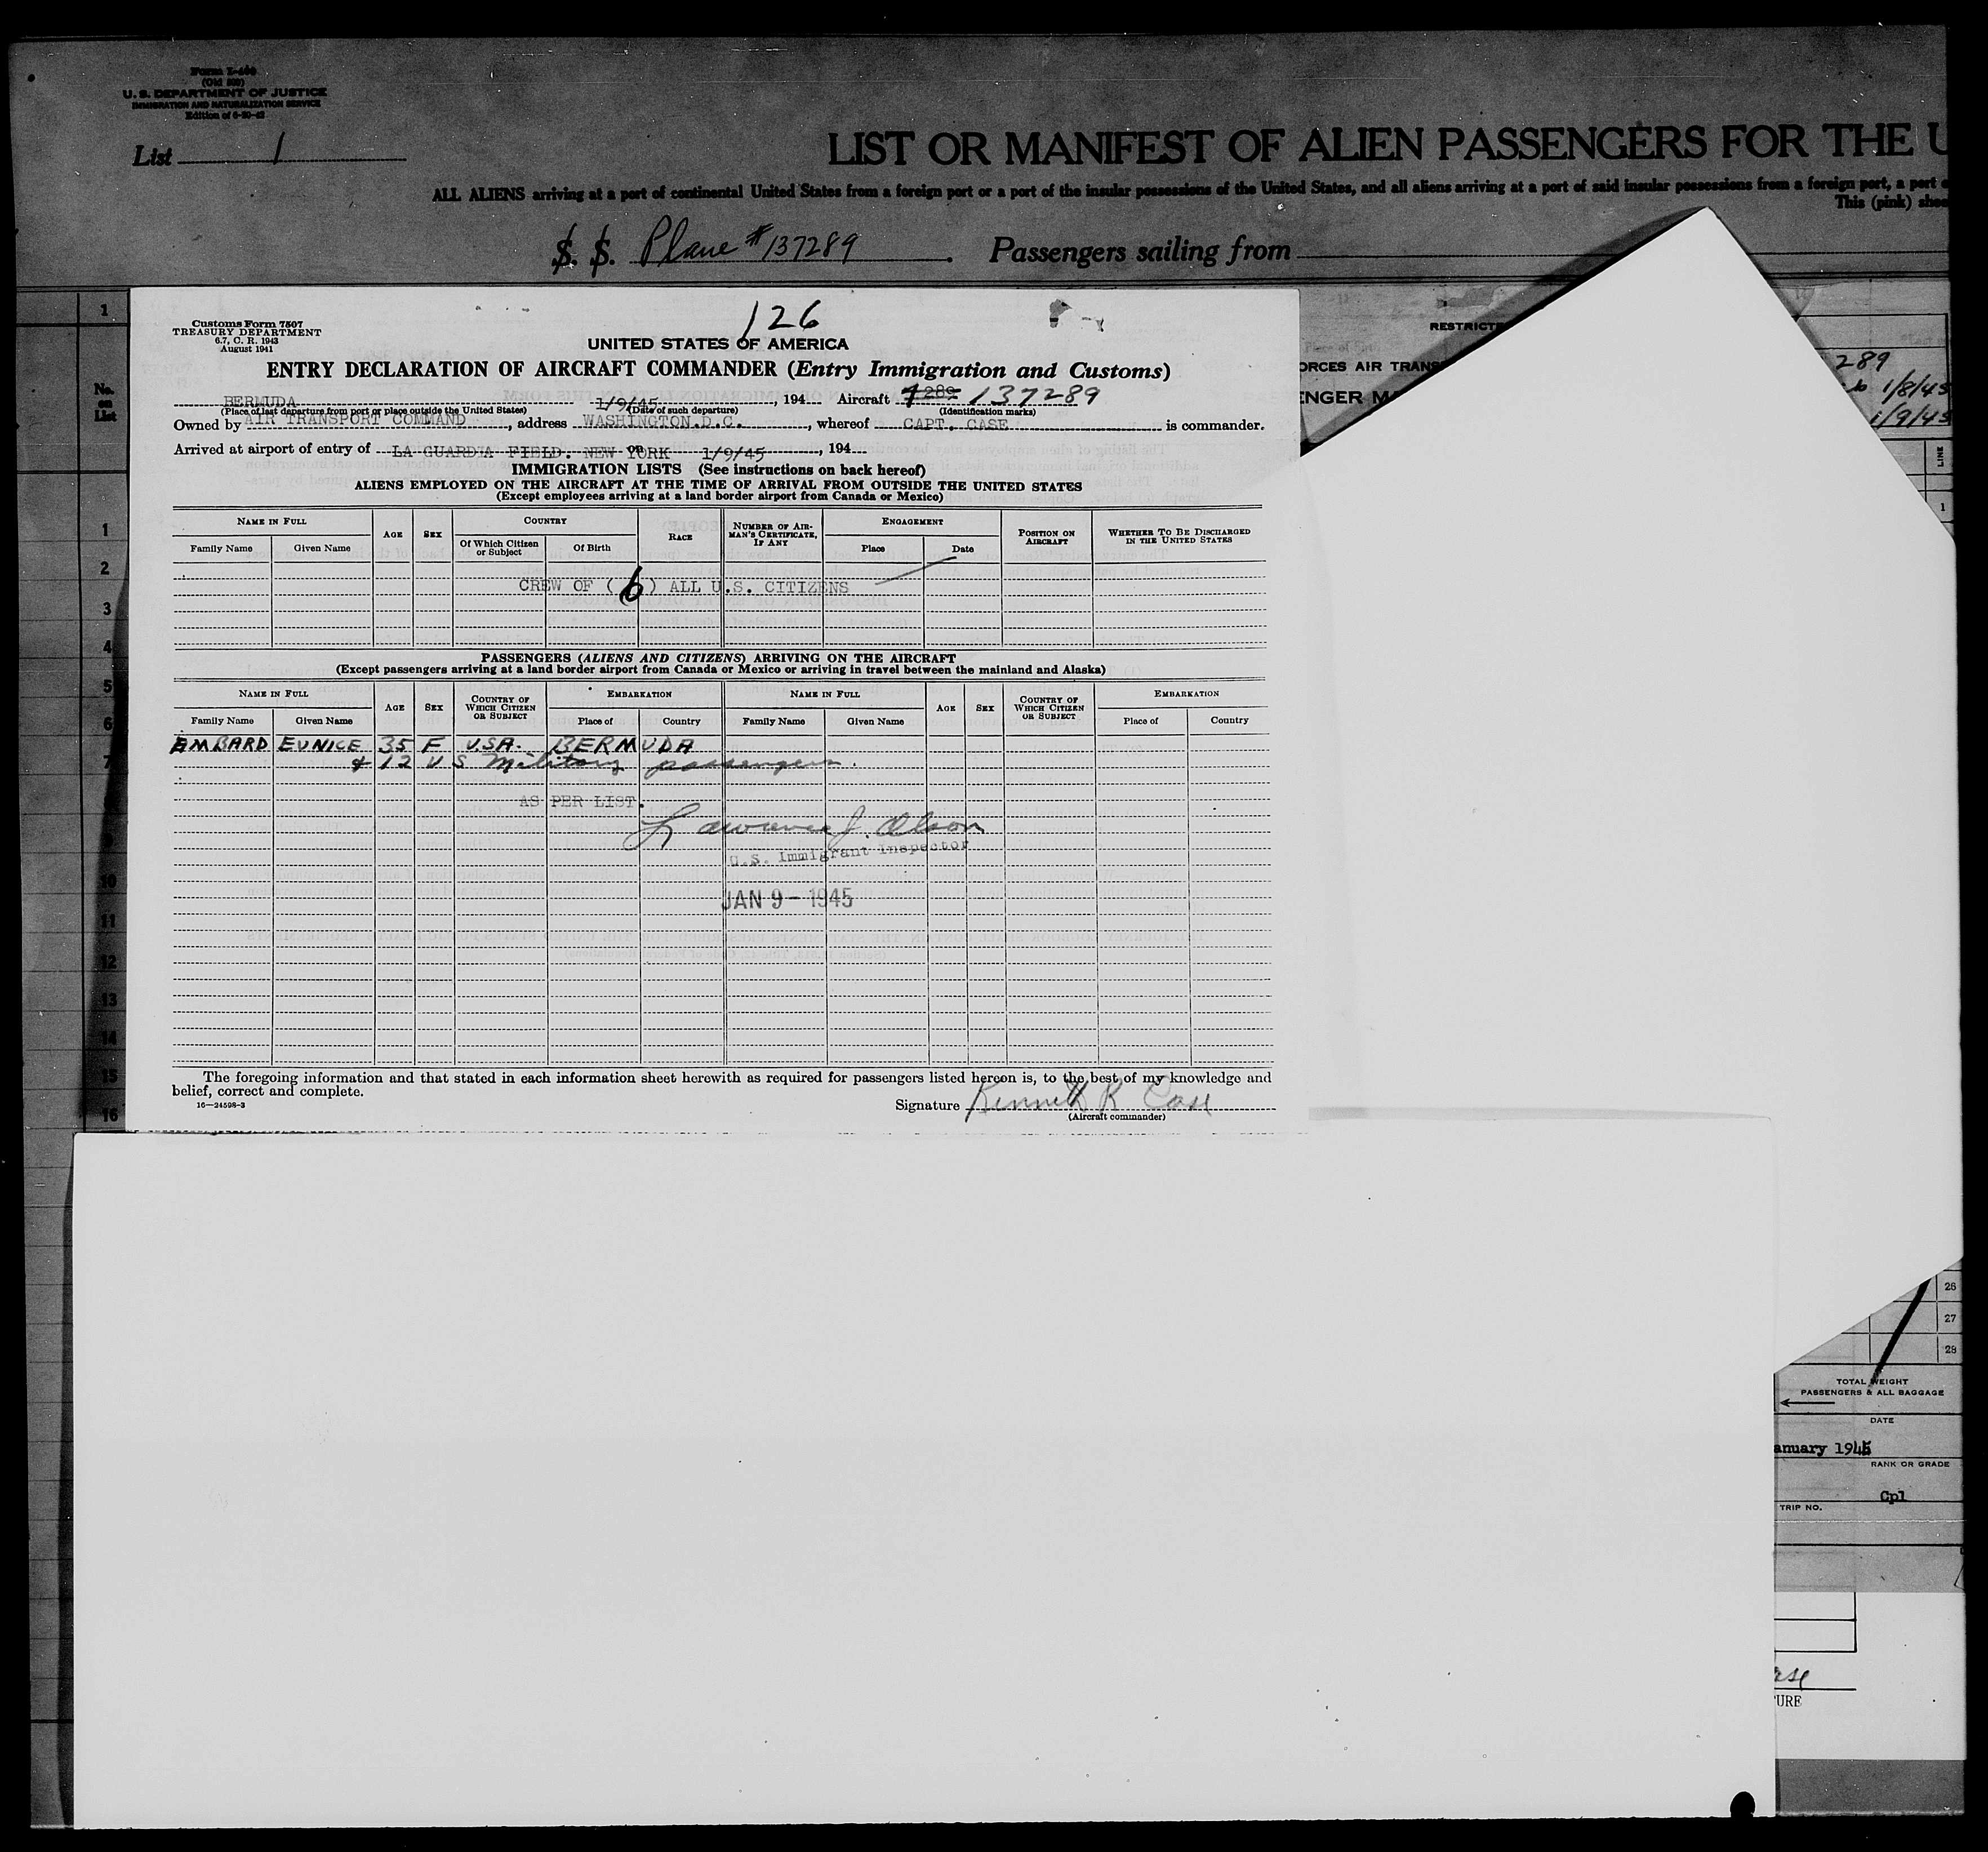 Form I-466
(Old 500)
U. S. DEPARTMENT OF JUSTICE
IMMIGRATION AND NATURALIZATION SERVICE
Edition of
List 1
LIST OR MANIFEST OF ALIEN PASSENGERS FOR THE U
ALL ALIENS arriving at a port of continental United States from a foreign port or a port of the insular possessions of the United States, and all aliens arriving at a port of said insular possessions from a foreign port, a port
This (pink) shee
S. S. Plane # 137289 . Passengers sailing from
No. on List
1
2
3
4
5
6
7
9
10
11
12
13
14
15
16
126
Customs Form 7507
TREASURY DEPARTMENT
6.7, C. R. 1943
August 1941
UNITED STATES OF AMERICA
ENTRY DECLARATION OF AIRCRAFT COMMANDER (Entry Immigration and Customs)
BERMUDA 1/9/45, 194 Aircraft 7289 137289
(Place of last departure from port or place outside the United States) (Date of such departure) (Identification marks)
Owned by AIR TRANSPORT COMMAND, address WASHINGTON.D.C., whereof CAPT. CASE is commander.
Arrived at airport of entry of LA GUARDIA FIELD. NEW YORK on 1/9/45, 194
IMMIGRATION LISTS (See instructions on back hereof)
ALIENS EMPLOYED ON THE AIRCRAFT AT THE TIME OF ARRIVAL FROM OUTSIDE THE UNITED STATES
(Except employees arriving at a land border airport from Canada or Mexico)
NAME IN FULL AGE SEX COUNTRY RACE NUMBER OF AIRMAN'S CERTIFICATE, IF ANY ENGAGEMENT POSITION ON AIRCRAFT WHETHER TO BE DISCHARGED IN THE UNITED STATES
Family Name Given Name Of Which Citizen or Subject Of Birth Place Date
CREW OF (6) ALL U.S. CITIZENS
PASSENGERS (ALIENS AND CITIZENS) ARRIVING ON THE AIRCRAFT
(Except passengers arriving at a land border airport from Canada or Mexico or arriving in travel between the mainland and Alaska)
NAME IN FULL AGE SEX COUNTRY OF WHICH CITIZEN OR SUBJECT EMBARKATION NAME IN FULL AGE SEX COUNTRY OF WHICH CITIZEN OR SUBJECT EMBARKATION
Family Name Given Name Place of Country Family Name Given Name Place of Country
EMBARD EUNICE 35 F U.S.A. BERMUDA
& 12 U S Military passengers.
AS PER LIST.
Lawrence J. Olson
U.S. Immigrant Inspector
JAN 9 - 1945
The foregoing information and that stated in each information sheet herewith as required for passengers listed hereon is, to the best of my knowledge and
belief, correct and complete.
16—24598-3
Signature Kenneth R Case
(Aircraft commander)
RESTRICTE
ORCES AIR TRANS
ENGER M
289
1/8/45
1/9/45
LINE
1
26
27
28
TOTAL WEIGHT
PASSENGERS & ALL BAGGAGE
DATE
anuary 1945
RANK OR GRADE
Cpl
TRIP NO.
ase
URE